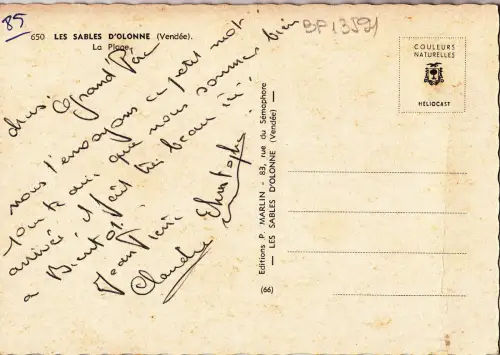 85
650 LES SABLES D'OLONNE (Vendée).
La Plage.
BP 13591
Grand Père
nous t'envoyons ce petit mot
pour te dire que nous sommes bien
arrivé, il fait très beau ici!
a Bientôt.
Jean Pierre
Claudie Christophe
Editions P. MARLIN - 83, rue du Sémaphore
— LES SABLES D'OLONNE (Vendée) —
(66)
COULEURS
NATURELLES
HÉLIOCAST